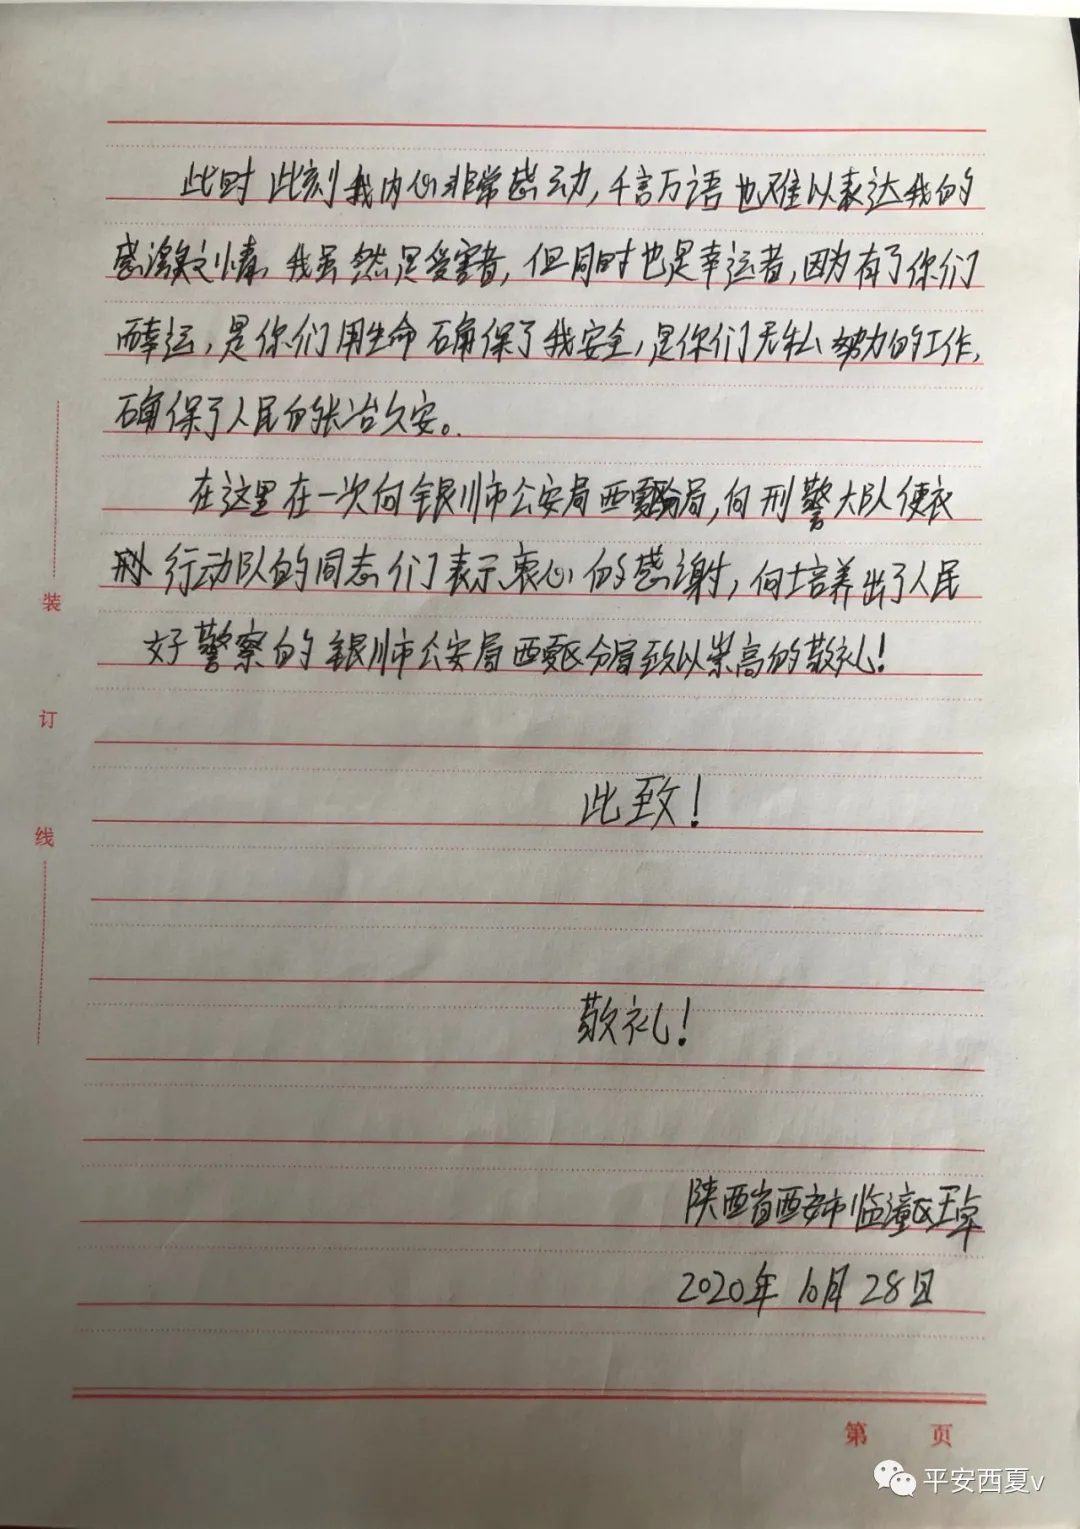 此时此刻我内心非常感动,千言万语也难以表达我的
感激之情,我虽然是受害者,但同时也是幸运者,因为有了你们
而幸运,是你们用生命确保了我安全,是你们无私努力的工作,
确保了人民的长治久安。
在这里在一次向银川市公安局西夏分局,向刑警大队便衣
行动队的同志们表示衷心的感谢,向培养出了人民
好警察的银川市公安局西夏区分局致以崇高的敬礼!
此致!
敬礼!
陕西省西安市临潼区王卓
2020年10月28日
装
订
线
第 页
平安西夏v